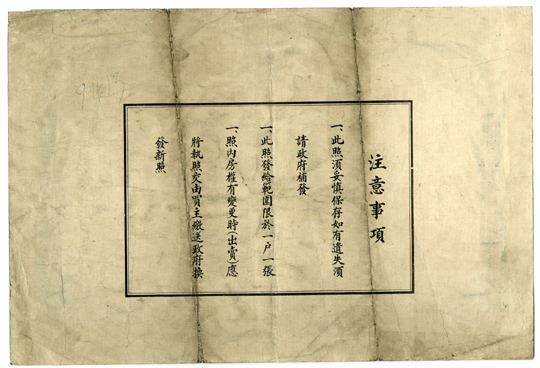 注意事項
一、此照須妥慎保存如有遺失須
請政府補發
一、此照發給範圍限於一户一張
一、照內房權有變更時(出賣)應
將執照交由買主繳送政府換
發新照